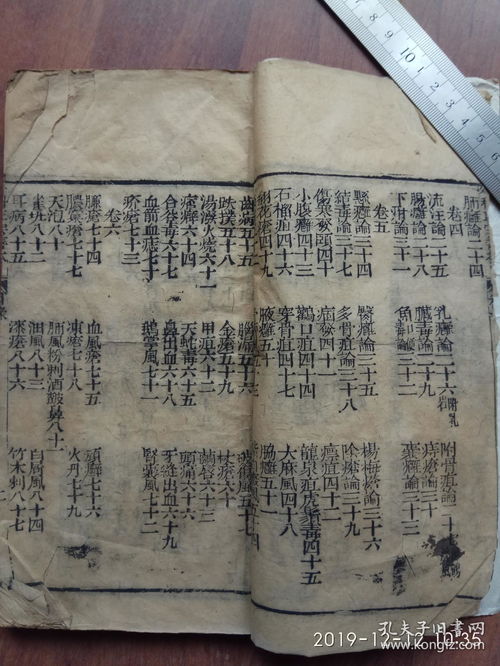 肺癰論二十四
卷四
流注論二十五
乳癰論二十六 附乳岩
附骨疽論二十七
腸癰論二十八
臟毒論二十九
痔瘡論三十
下疳論三十一
魚口
囊癰論三十三
懸癰論三十四
臀癰論三十五
楊梅瘡論三十六
結毒論三十七
多骨疽論三十八
論三十九
卷五
傷寒發頤四十
四十一
四十二
小腹癰四十三
鶴口疽四十四
龍泉疽虎鬚毒四十五
石榴疽四十六
穿骨疽四十七
大麻風四十八
翻花瘡四十九
腋癰五十
脇癰五十一
齒病五十五
腦漏五十六
破傷風五十七
跌撲五十八
金瘡五十九
杖瘡六十
湯潑火燒六十一
甲疽六十二
六十三
六十四
天蛇毒六十五
合谷毒六十七
鼻出血六十八
牙縫出血六十九
血箭血痣七十
鵝掌風七十一
腎囊風七十二
疥瘡七十三
卷六
臁瘡七十四
血風瘡七十五
頑癬七十六
膿窠瘡七十七
凍瘡七十八
火丹七十九
天泡八十
肺風粉刺酒皶鼻八十一
雀斑八十二
油風八十三
白屑風八十四
耳病八十五
漆瘡八十六
竹木刺八十七
7 8 9 10 11 12 13
2019-12-12 10:35
孔夫子旧书网
www.kongfz.com